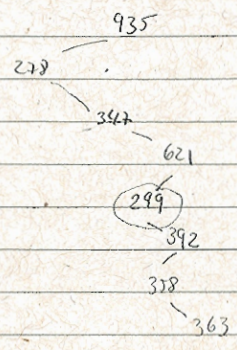 935
278
347
621
299
392
358
363